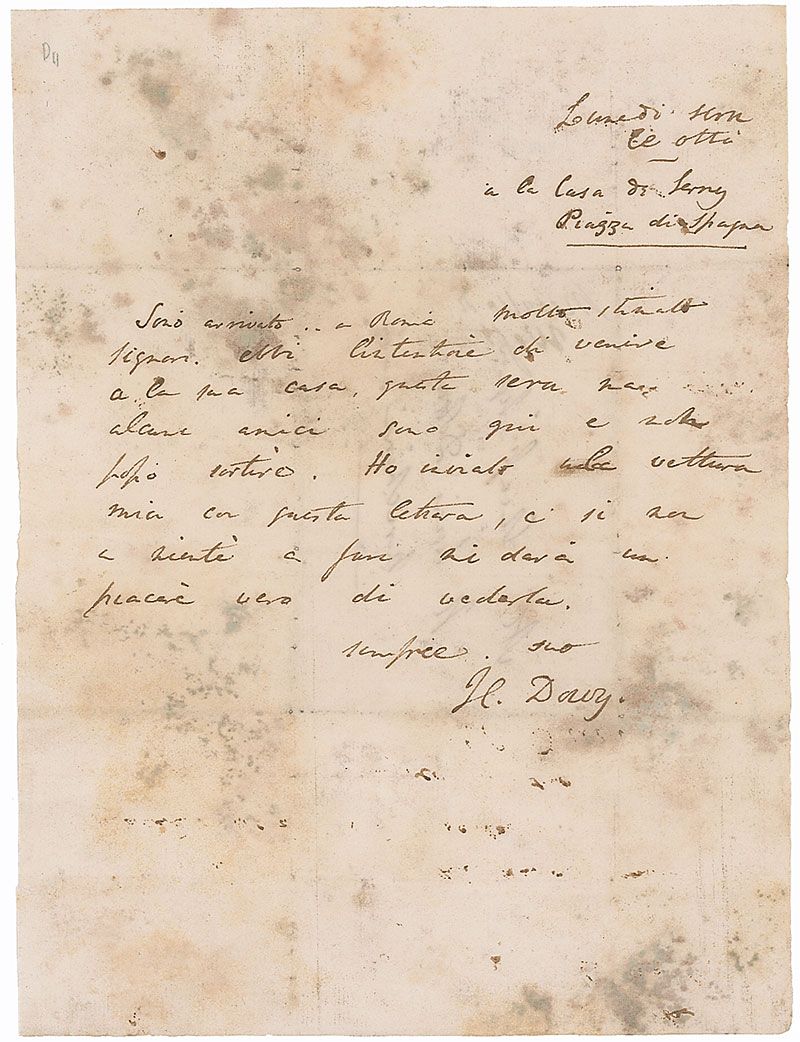 D4
Lunedi sera
le otto
a la Casa di Serny
Piazza di Spagna
Sono arrivato .. a Roma molto stimato
signore. ebbi l'intentione di venire
a la sua casa, questa sera ma
alcuni amici sono qui e non
posso sortire. Ho inviato la vettura
mia con questa lettera, e si non
a niente a fare mi dará un
piacere vero di vederla.
sempre. suo
H. Dowy.